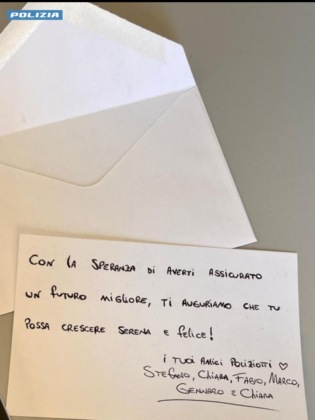 POLIZIA
CON LA SPERANZA DI AVERTI ASSICURATO
UN FUTURO MIGLIORE, TI AUGURIAMO CHE TU
POSSA CRESCERE SERENA E FELICE!
I TUOI AMICI POLIZIOTTI ♡
STEFANO, CHIARA, FABIO, MARCO,
GENNARO E CHIARA